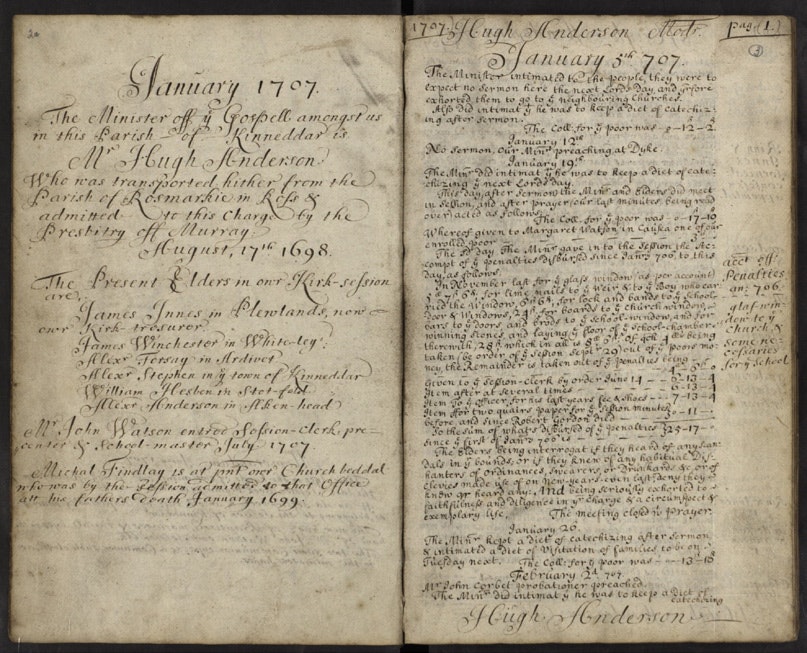 January 1707.
The Minister off ye Gospell amongst us
in this Parish of Kinneddar is
Mr Hugh Anderson
Who was transported hither from the
Parish of Rosmarkie in Ross &
admitted to this Charge by the
Presbitry off Murray
August, 17th 1698.
The Present Elders in our Kirk-session
are,
James Innes in Plewlands, now
our Kirk-tresuror
James Winchester in White-ley
Alexr Torsay in Ardivot
Alexr Stephen in ye town of Kinneddar
William Hesben in Stot-fold
Alexr Anderson in Aken-head
Mr John Watson entred Session-Clerk, pre-
center & School-master July 1707
Michal Findlay is at pnt our Church beddal
who was by the Session admitted to that Office
att his fathers death January 1699.
1707. Hugh Anderson Modr. pag (1.)
January 5th 707.
The Minister intimated to the people, they were to
expect no sermon here the next Lords day, and yrfore
exhorted them to go to ye neighbouring Churches.
Also did intimat yt he was to keep a diet of catechiz-
ing after sermon.
The Coll: for ye poor was 0-12-2
January 12th
No Sermon, Our Minr preaching at Dyke.
January 19th
The Minr did intimat yt he was to keep a diet of cate-
chizing ye next Lords day.
This day, after sermon the Minr and Elders did meet
in session, and after prayer our last minutes being read
over acted as follows.
The Coll: for ye poor was 0-17-10
Whereof given to Margaret Watson in Causea one of our
enrolled poor
The sd day The Minr gave in to the Session the Ac-
compt of ye penalties disbursed since Janr 706, to this
day, as follows.
In November last for ye glass window (as per account)
for lime nails to ye Weir & to ye Boy who car-
ried the window, for lock and bands to ye school-
door & Windows, for boards to ye Church window,
bars to ye doors, and brods to ye school-window, and for
winning stones, and laying ye floor of ye school-chamber
therewith, which in all is being
taken (be order of ye Session Septr 29) out of ye poors mo-
ney, the Remainder is taken out of ye penalties being
Given to ye Session-Clerk by order June 14 6-13-4
Item after at several times 6-13-4
Item to ye Officer for his last years fee & shoes 7-13-4
Item for two quairs paper for ye Session minutes
before, and since Robert Gordon died 0-11-
So the sum of whats disbursed of ye penalties 25-17-
since ye first of Janr 706 is
The Elders being interrogat if they heard of any scan-
dals in ye bounds, or if they knew of any habitual Dis-
hanters of Ordinances, Swearers, or Drunkards &c, or of
Clevies made use of on New-years-even last, deny they
know or heard any: And being seriously exhorted to
faithfulness and diligence in ye Charge & a circumspect &
exemplary life, The meeting closed wt prayer.
January 26.
The Minr kept a diet of catechizing after sermon,
& intimated a diet of Visitation of families to be on
Tuesday next. The Coll: for ye poor was 0-13-10
February 2d 707.
Mr John Corbet probationer preached.
The Minr did intimat yt he was to keep a diet of
catechizing
Hugh Anderson
acct off
Penalties
an: 706.
glas win-
dow to ye
Church &
some ne-
cessaries
for ye School